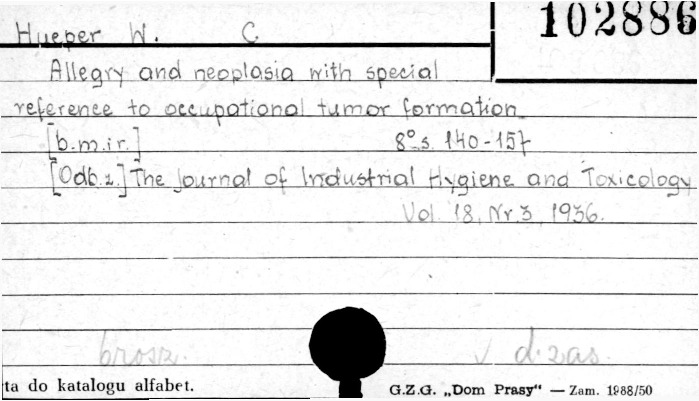 Hueper W. C
102886
Allegry and neoplasia with special
reference to occupational tumor formation
[b.m.i r.] 8° s. 140-157
[Odb.z.] The Journal of Industrial Hygiene and Toxicology
Vol. 18, Nr 3, 1936.
brosz. v d. zas.
ta do katalogu alfabet. G.Z.G. „Dom Prasy“ — Zam. 1988/50